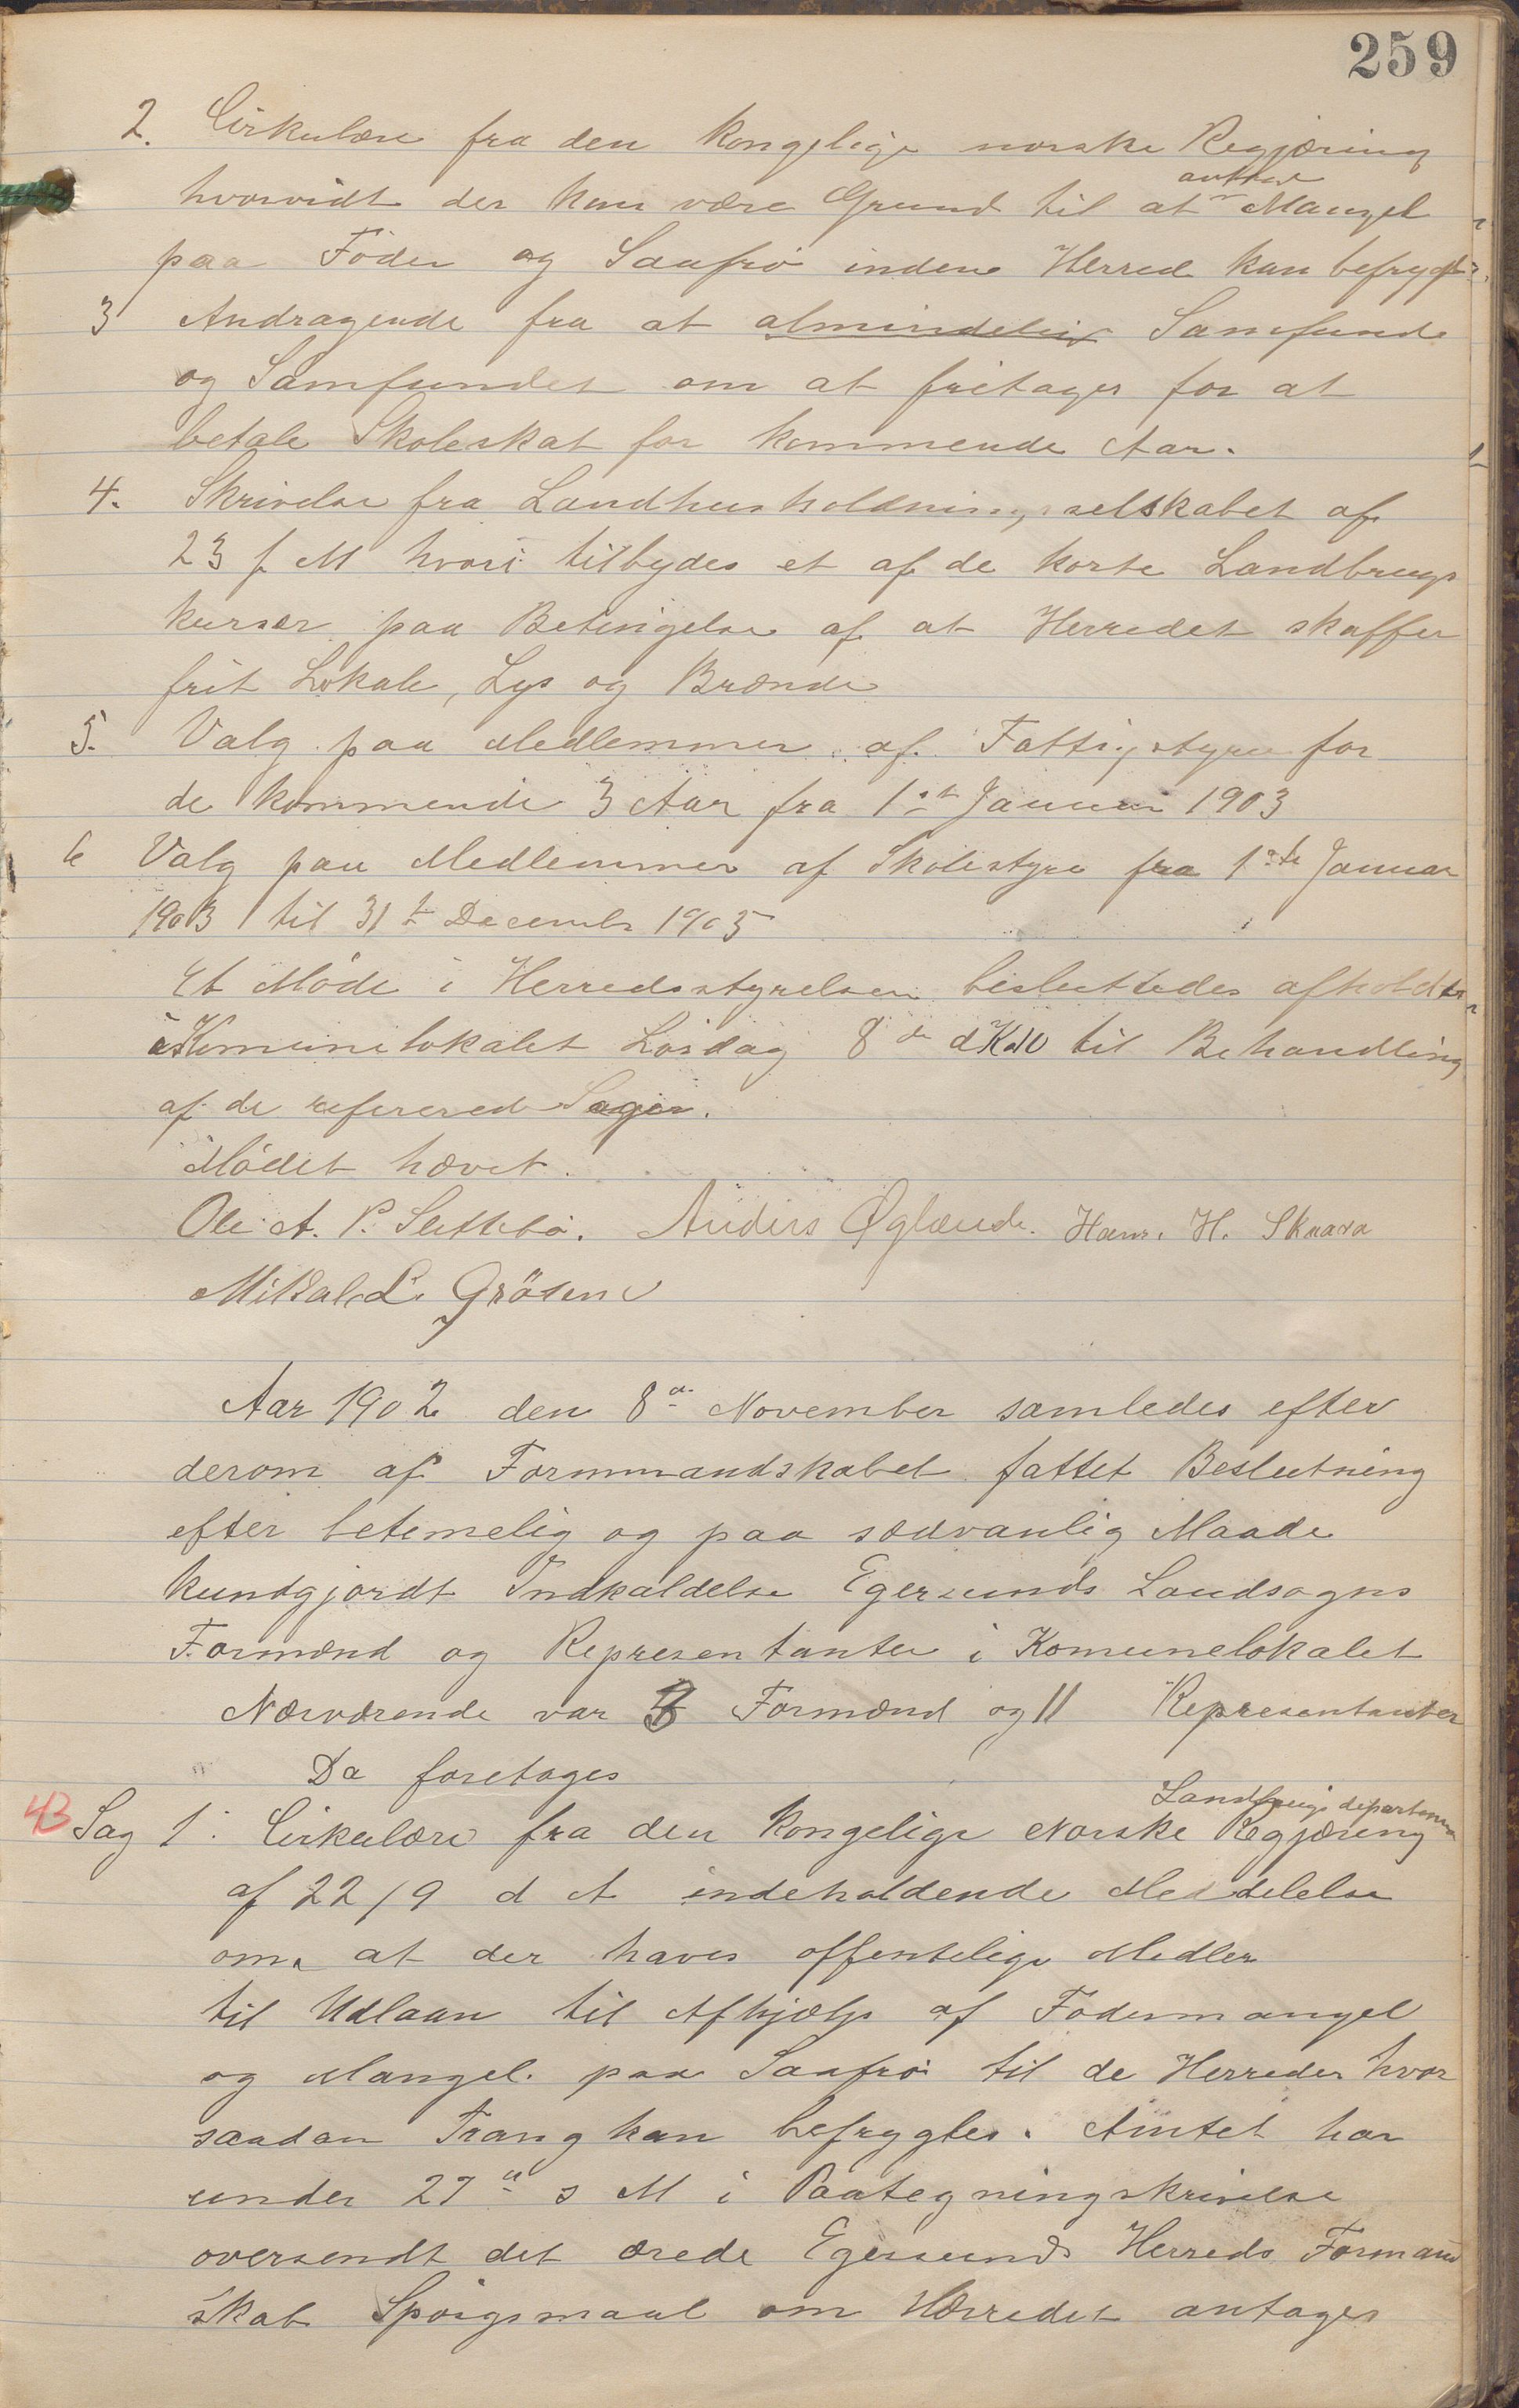 259
2. Cirkulære fra den Kongelige norske Regjæring
hvorvidt der kan være Grund til at antage Mangel
paa Föder og Saafrö inden Herred kan befrygtes
3 Andragende fra at almindelig Samfund
og Samfundet om at fritages for at
betale Skoleskat for kommende Aar.
4. Skrivelse fra Landhusholdningsselskabet af
23 f. M hvori tilbydes et af de korte Landbrugs
kurser paa Betingelse af at Herredet skaffer
frit Lokale, Lys og Brænde
5. Valg paa Medlemmer af Fattigstyre for
de kommende 3 Aar fra 1ste Januar 1903
6 Valg paa Medlemmer af Skolestyre fra 1ste Januar
1903 til 31te December 1905
Et Möde i Herredsstyrelsen besluttedes afholdt
i Komunelokalet Lördag 8de til Behandling
af de referered Sager.
Mödet hævet.
Ole A. P. Slettebö. Anders Øglænd. Hans. H. Skaara
Mikal L. Grösen
Aar 1902 den 8de November samledes efter
derom af Formmandskabet fattet Beslutning
efter betimelig og paa sædvanlig Maade
kundgjordt Indkaldelse Egersunds Landsogns
Formænd og Representanter i Komunelokalet
Nærværende var 3 Formænd og 11 Representanter
Da foretages
Landbrugsdepartement
43 Sag 1. Cirkulære fra den Kongelige Norske Regjæring
af 22/9 d A indeholdende Meddelelse
om at der haves offentelige Midler
til Udlaan til Afhjælp af Födermangel
og Mangel paa Saafrö til de Herreder hvor
saadan Trang kan befrygtes. Amtet har
under 27de s M i Paategningskrivelse
oversendt det ærede Egersunds Herreds Formand
skab Spörgsmaal om Herredet antages